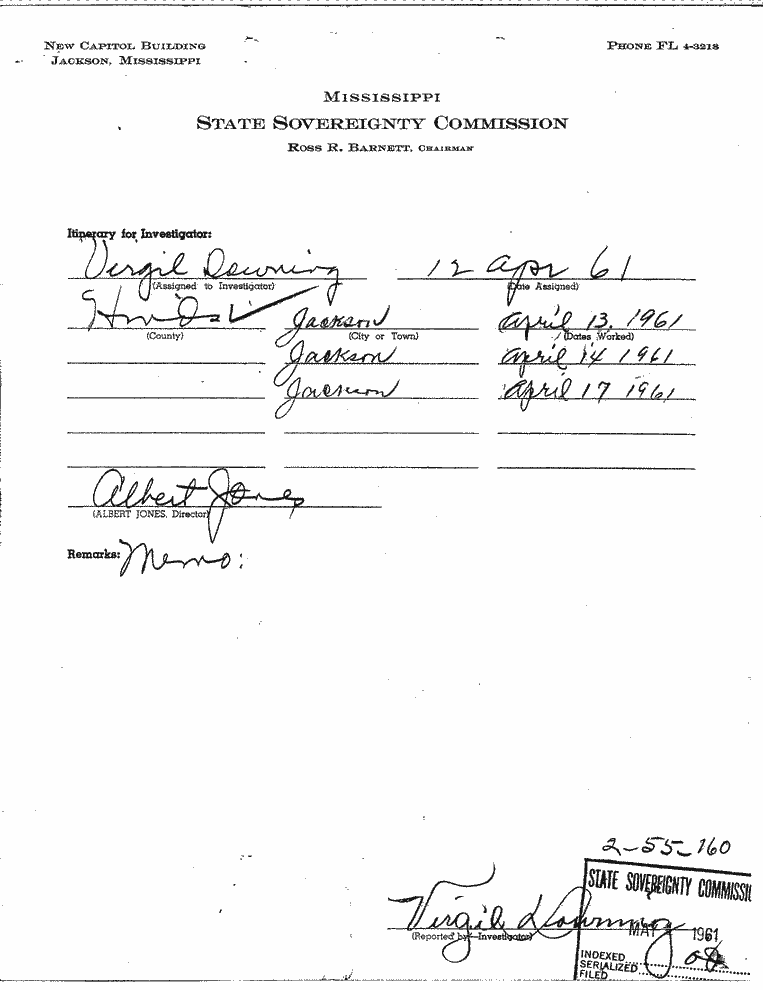 NEW CAPITOL BUILDING
JACKSON, MISSISSIPPI
PHONE FL 4-3218
MISSISSIPPI
STATE SOVEREIGNTY COMMISSION
ROSS R. BARNETT, CHAIRMAN
Itinerary for Investigator:
Virgil Downing 12 Apr 61
(Assigned to Investigator) (Date Assigned)
Hinds Jackson April 13, 1961
(County) (City or Town) (Dates Worked)
Jackson April 14 1961
Jackson April 17 1961
Albert Jones
(ALBERT JONES, Director)
Remarks: Memo:
2-55-160
STATE SOVEREIGNTY COMMISSI
Virgil Downing
(Reported by—Investigator)
MAY 1961
INDEXED
SERIALIZED
FILED